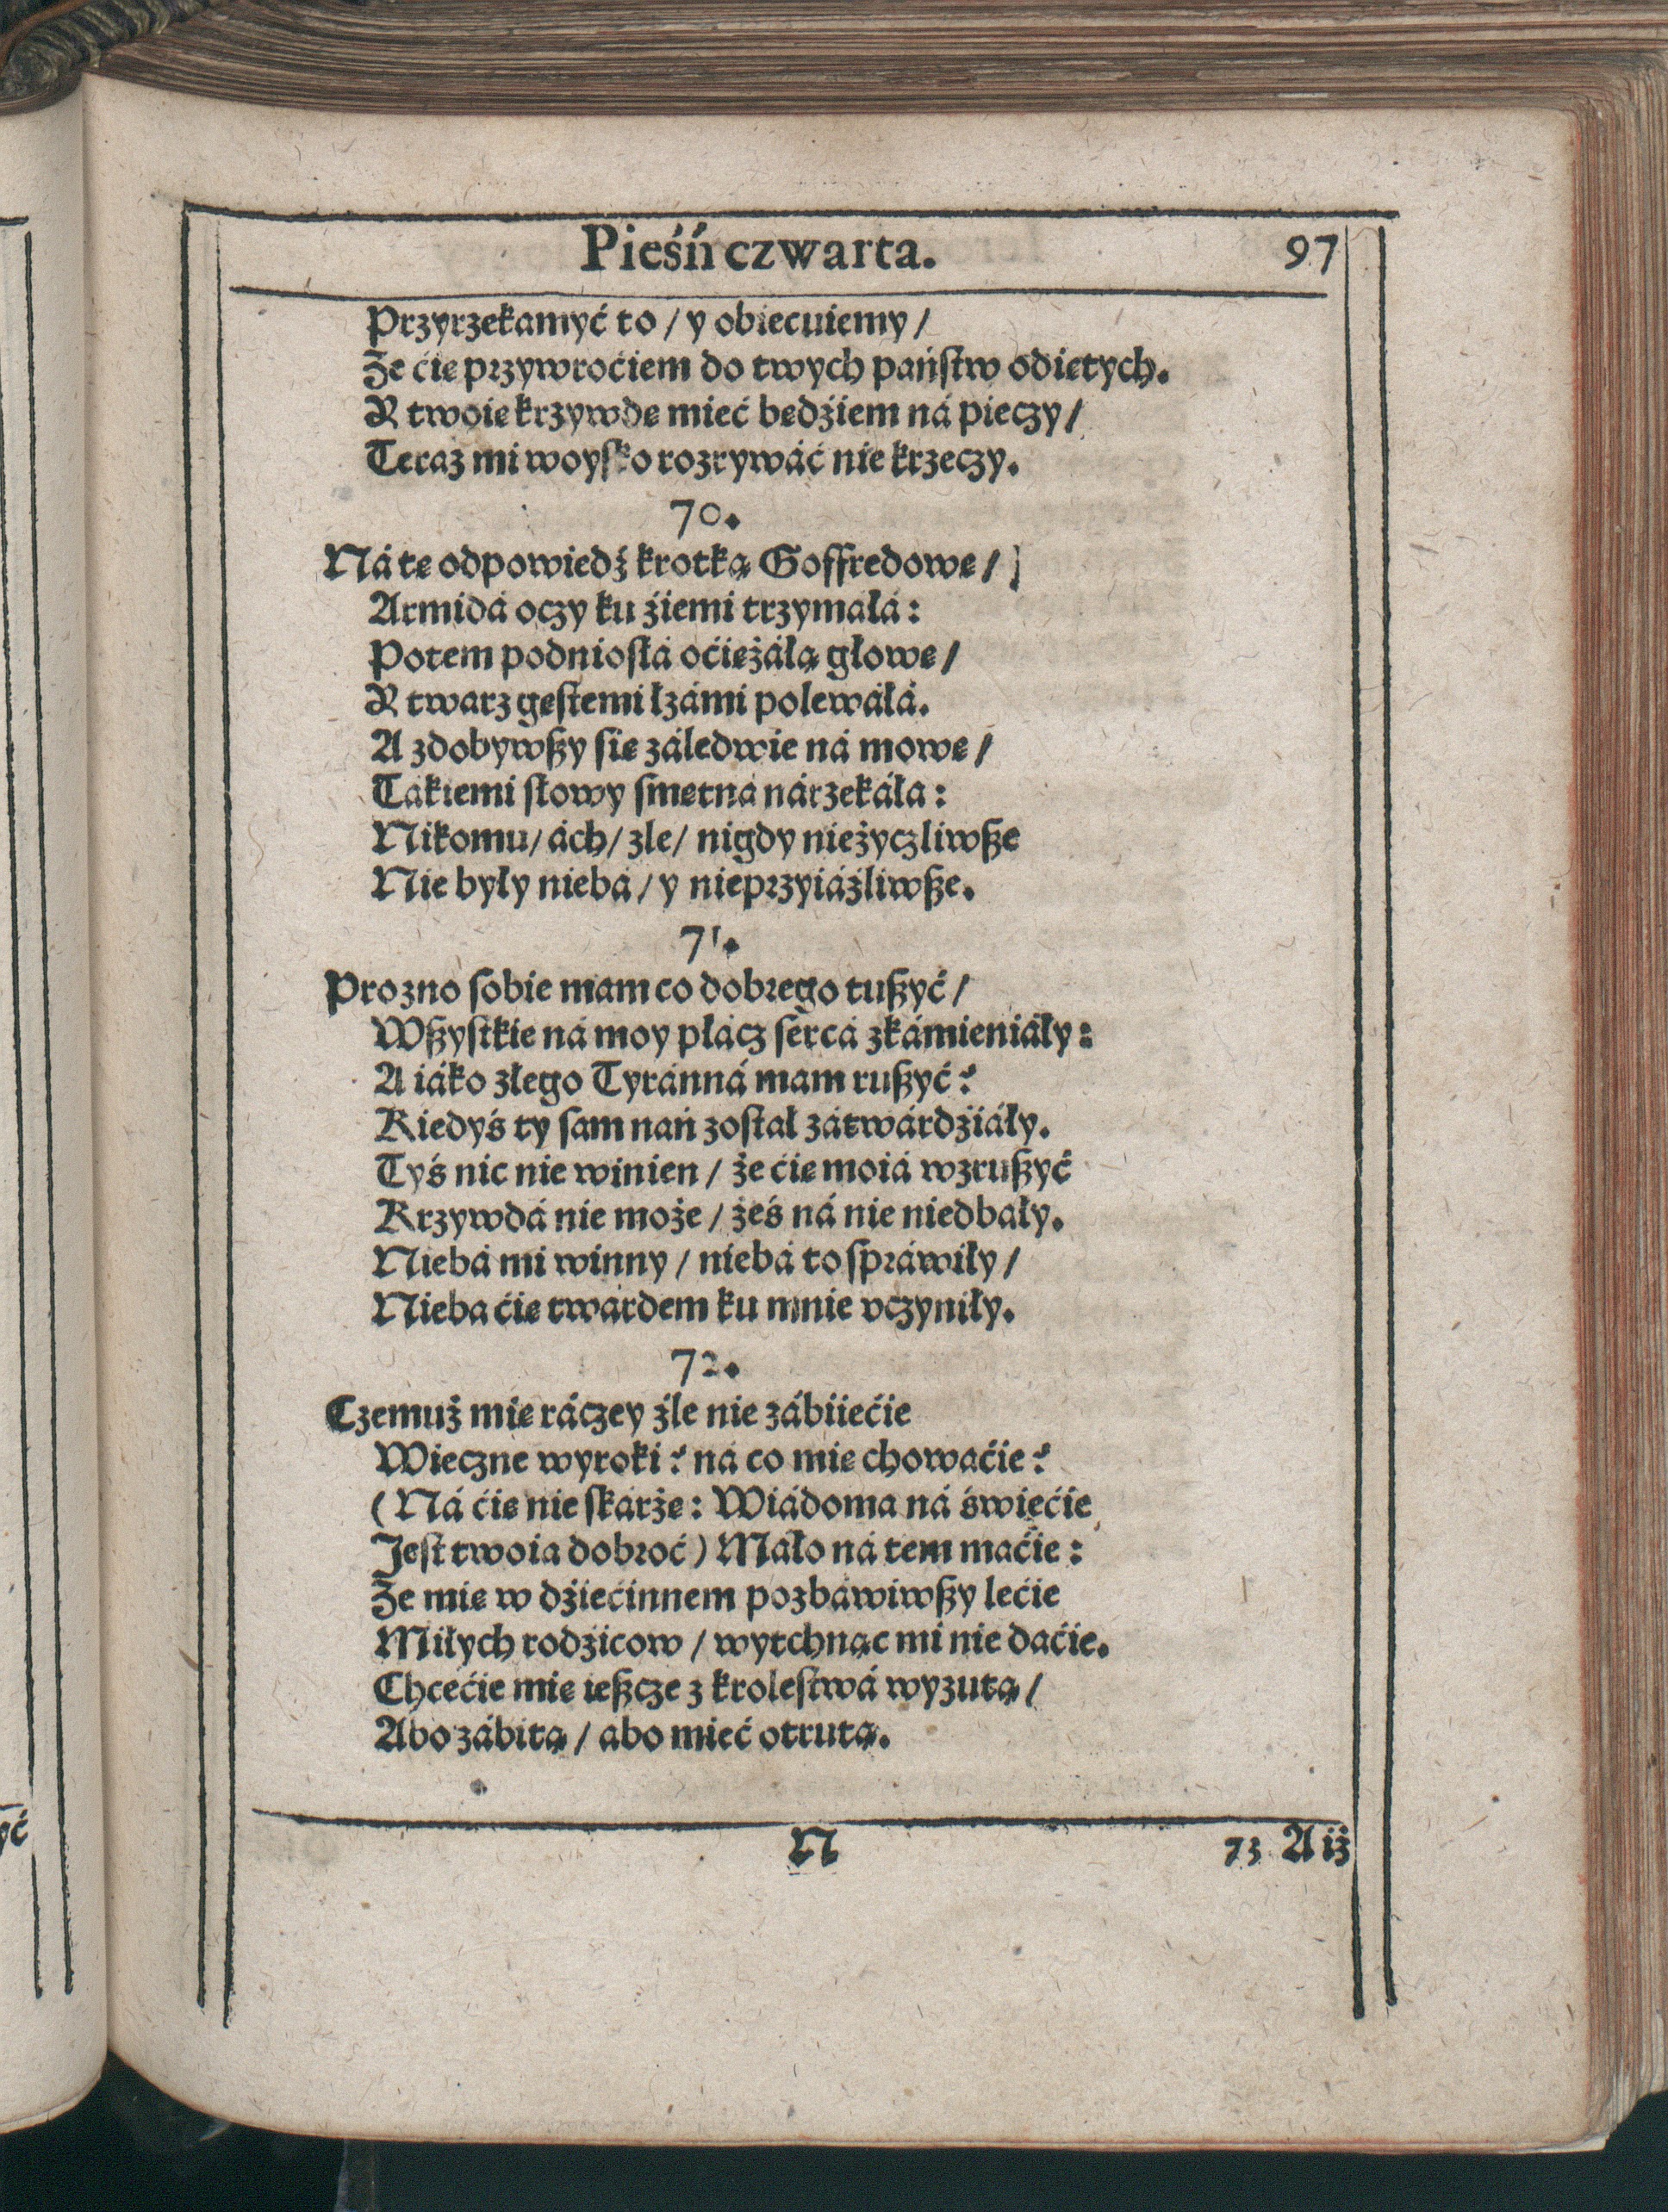 Pieśń czwarta. 97
Przyrzekamyć to / y obiecuiemy /
Że ćię przywroćiem do twych państw odiętych.
Y twoię krzywdę mieć będźiem ná pieczy /
Teraz mi woysko rozrywáć nie krzeczy.
70.
Ná tę odpowiedź krotką Goffredowę /
Armidá oczy ku źiemi trzymałá:
Potem podniosłá oćiężáłą głowę /
Y twarz gęstemi łzámi polewáłá.
A zdobywszy się záledwie ná mowę /
Tákiemi słowy smętna nárzekáła:
Nikomu / ách / zle / nigdy nieżyczliwsze
Nie były niebá / y nieprzyiáźliwsze.
71.
Prozno sobie mam co dobrego tuszyć /
Wszystkie ná moy płácz sercá zkámieniáły:
A iáko złego Tyránná mam ruszyć?
Kiedyś ty sam nań został zátwárdźiáły.
Tyś nic nie winien / że ćię moiá wzruszyć
Krzywdá nie może / żeś ná nię niedbały.
Niebá mi winny / niebá to spráwiły /
Nieba ćię twárdem ku mnie vczyniły.
72.
Czemuż mię ráczey źle nie zábiiećie
Wieczne wyroki? ná co mię chowaćie?
(Ná ćię nie skárżę: Wiádoma ná świećie
Jest twoia dobroć) Máło ná tem maćie:
Że mię w dźiećinnem pozbáwiwszy lećie
Miłych rodźicow / wytchnąc mi nie daćie.
Chcećie mię ieszcze z krolestwá wyzutą /
Abo zábitą / abo mieć otrutą.
N 73 A iż
yć